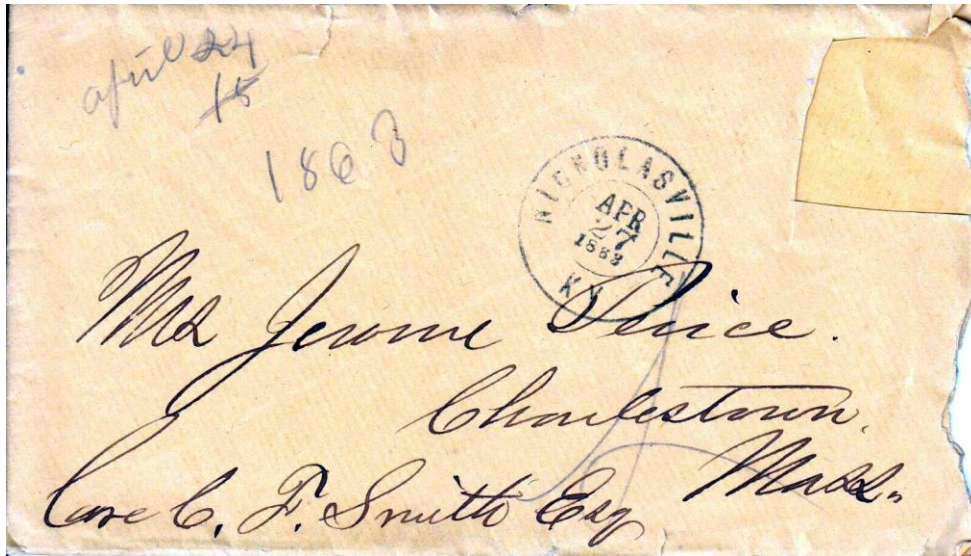 april 24
15
1863
NICHOLASVILLE
APR
27
1863
KY
Mrs Jerome Peirce.
Charlestown,
Mass.
Care C. F. Smith Esq